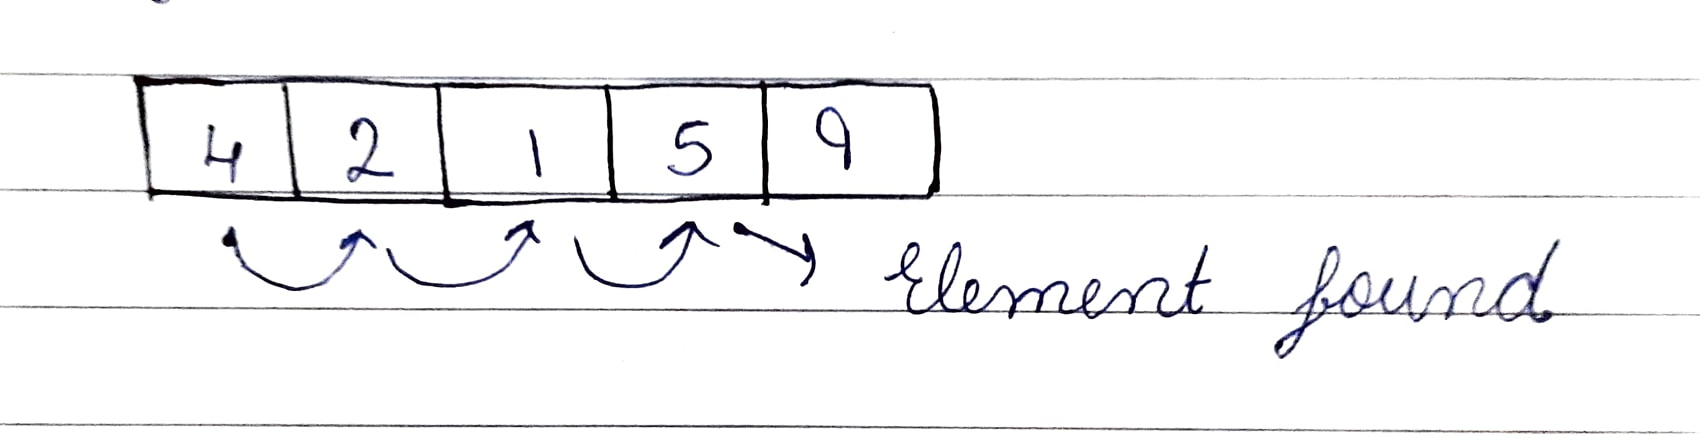 4 2 1 5 9
Element found